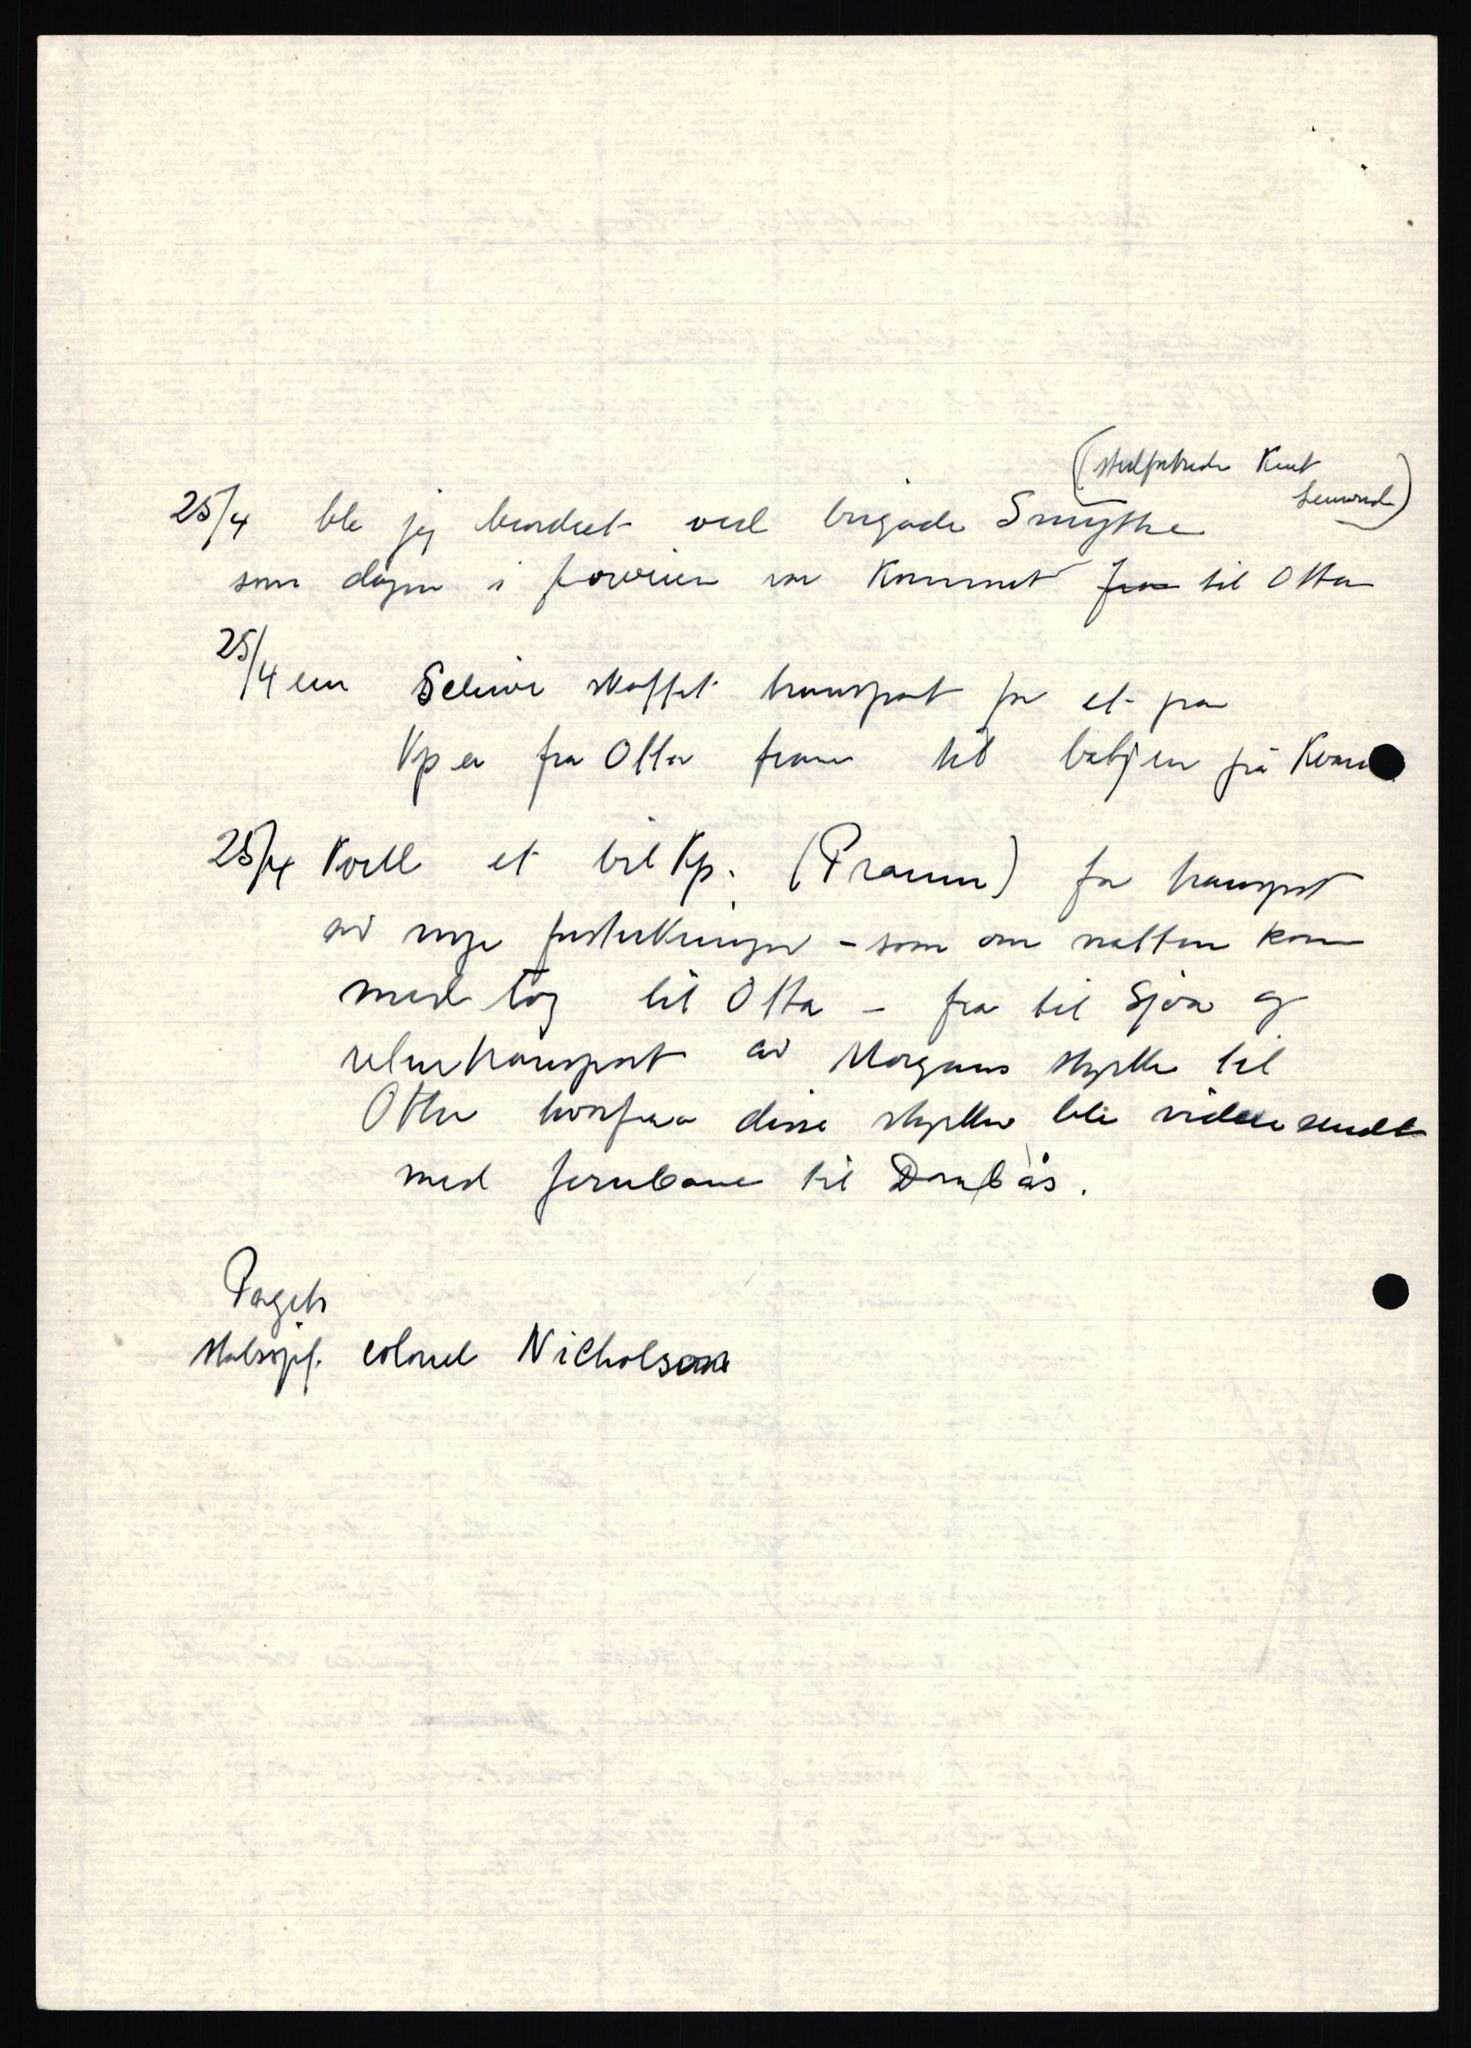 (stedfortreder Kent
25/4 ble jeg beordret ved brigade Smythe
som dagen i forveien var kommet fra til Otta
25/4 em skaffet transport for et par
Kp er fra Otta fram til
25/4 Kveld et bil Kp. (Pramm) for transport
av nye forsterkninger - som om natten kom
med tog til Otta - fra til Sjoa og
returtransport av Morgans styrke til
Otta hvorfra disse styrker ble videresendt
med jernbane til Dombås.
Pagets
stabssjef. colonel Nicholson